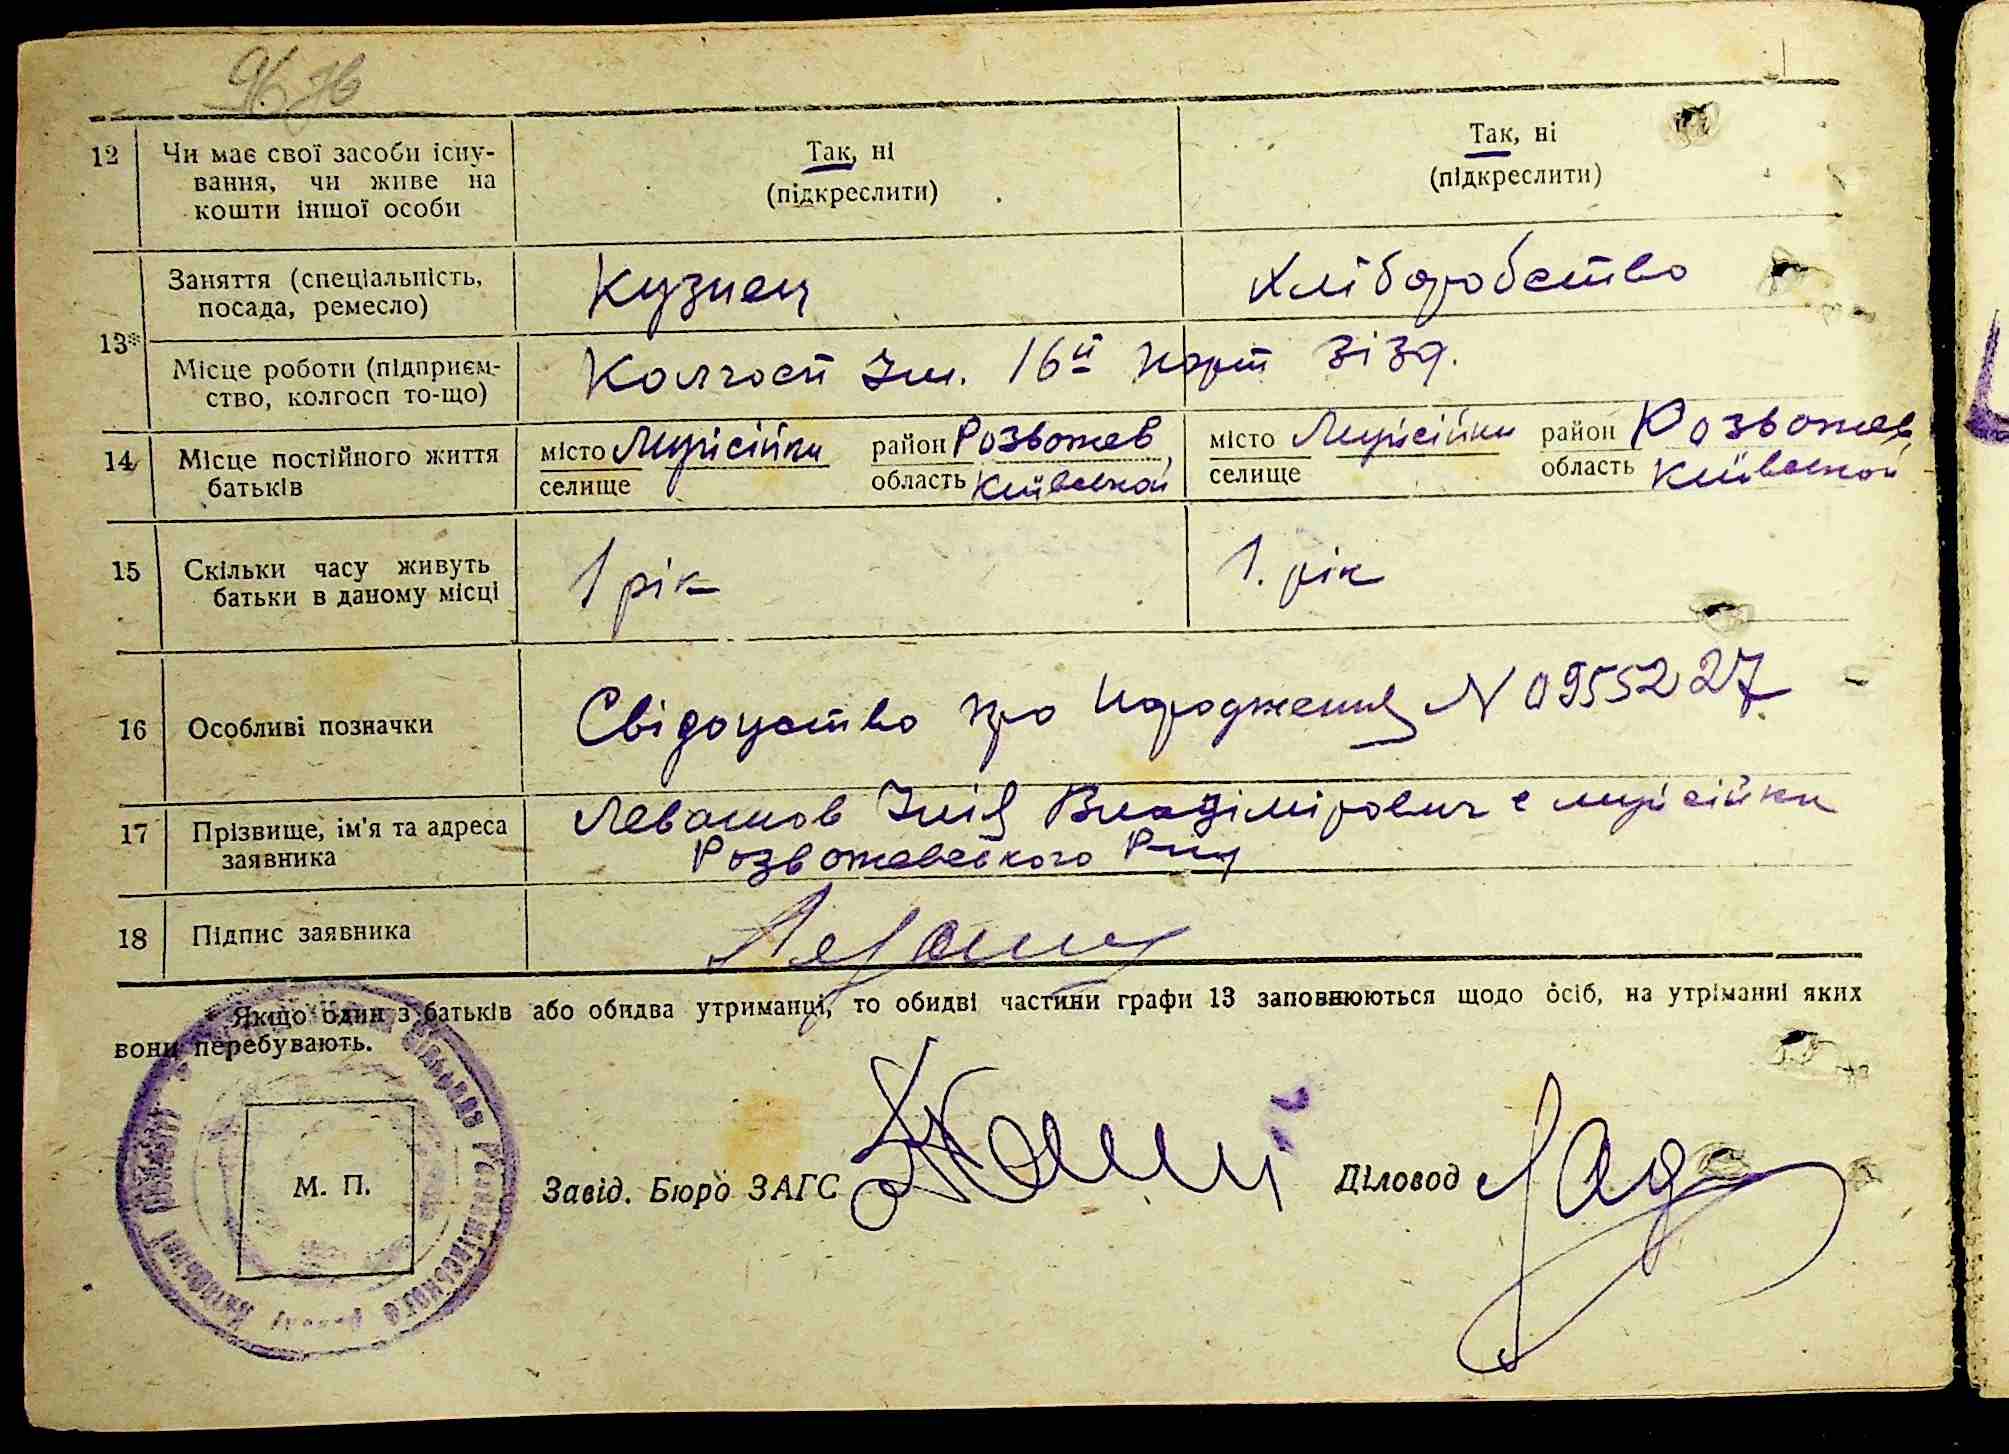 12 Чи має свої засоби існу-
вання, чи живе на
кошти іншої особи
Так, ні
(підкреслити)
Так, ні
(підкреслити)
13* Заняття (спеціальність,
посада, ремесло)
Кузнец
Хліборобство
Місце роботи (підприєм-
ство, колгосп то-що)
Колгосп Ім. 16й парт зізд.
14 Місце постійного життя
батьків
місто
селище
район Розвожев
область Київской
місто
селище
район Розвожев
область Київской
15 Скільки часу живуть
батьки в даному місці
1 рік
1. рік
16 Особливі позначки
Свідоцтво про Народження N 0955227
17 Прізвище, ім'я та адреса
заявника
Левашов Ілія Владімірович с
Розвожевського
18 Підпис заявника
Якщо один з батьків або обидва утриманці, то обидві частини графи 13 заповнюються щодо осіб, на утріманні яких
вони перебувають.
М. П.
Завід. Бюро ЗАГС
Діловод